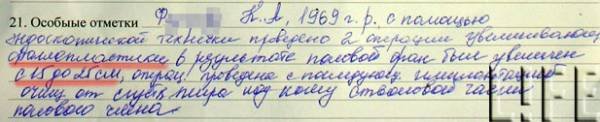 21. Особые отметки Ф К.А., 1969 г.р. с помощью
эндоскопической техники проведено 2 операции увеличивающей
фаллопластики в результате половой орган был увеличен
с 15 до 25 см, операц. проведена с последующ. имплантацией
очищ от сгустк жира под кожу стволовой части
полового члена